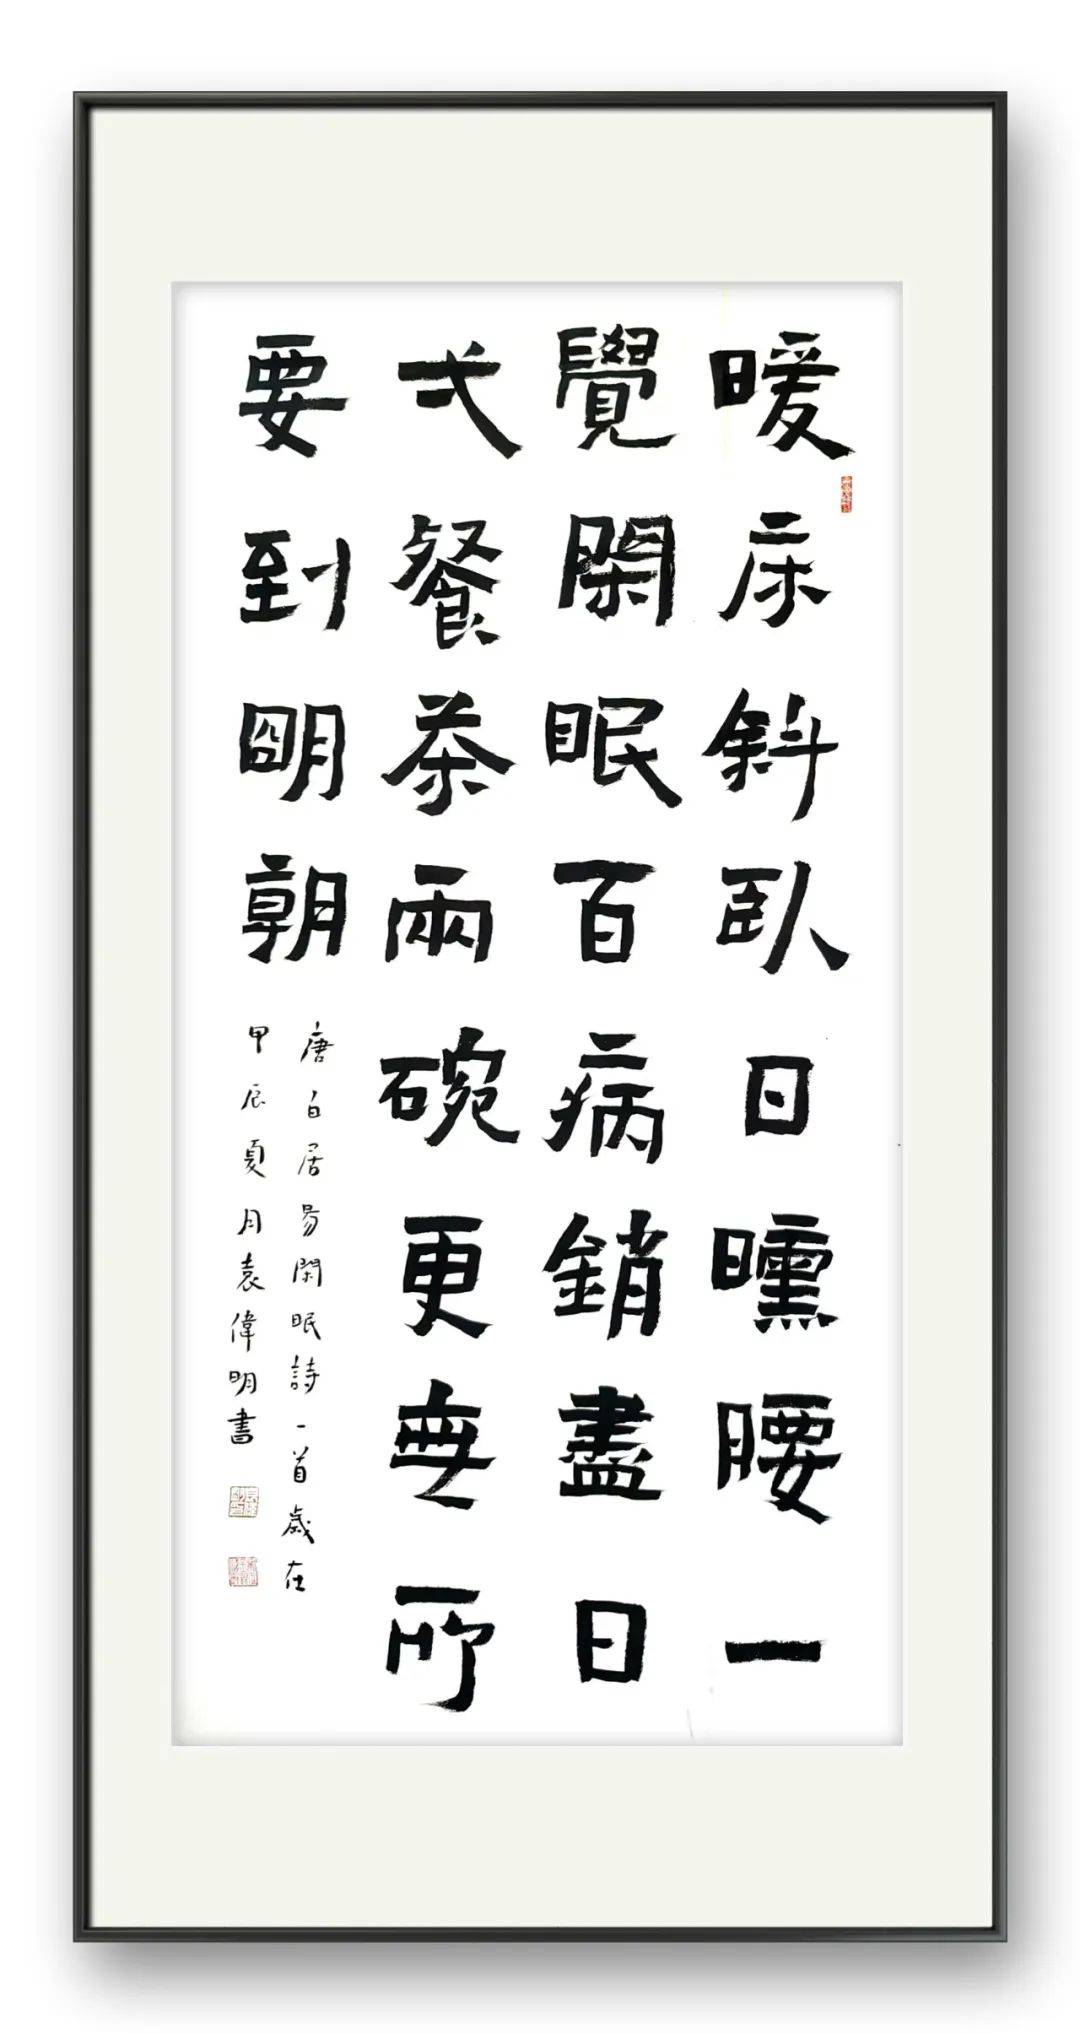 暖床斜臥日曛腰一
覺閑眠百病銷盡日
弌餐茶兩碗更無所
要到朙朝
唐白居易閑眠詩一首歲在
甲辰夏月袁偉明書